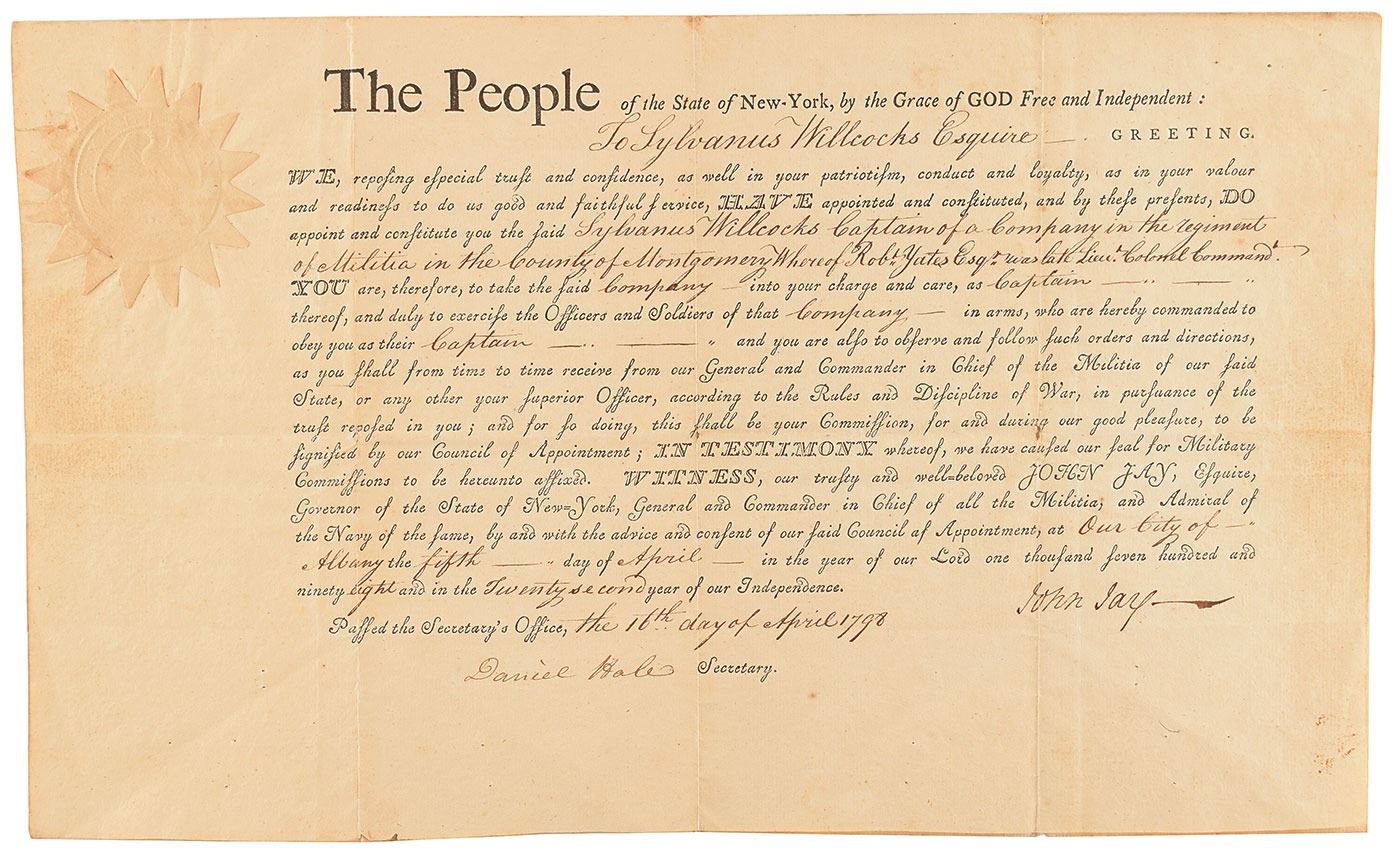 The People of the State of New-York, by the Grace of GOD Free and Independent :
To Sylvanus Willcocks Esquire — . GREETING.
WE, repoſing eſpecial truſt and confidence, as well in your patriotiſm, conduct and loyalty, as in your valour
and readineſs to do us good and faithful ſervice, HAVE appointed and conſtituted, and by theſe preſents, DO
appoint and conſtitute you the ſaid Sylvanus Willcocks Captain of a Company in the regiment
of Militia in the County of Montgomery Whereof Robt. Yates Esqr. was late Lieut. Colonel Commandt.
YOU are, therefore, to take the ſaid Company — into your charge and care, as Captain — .. — ..
thereof, and duly to exerciſe the Officers and Soldiers of that Company — in arms, who are hereby commanded to
obey you as their Captain — .. — " and you are alſo to obſerve and follow ſuch orders and directions,
as you ſhall from time to time receive from our General and Commander in Chief of the Militia of our ſaid
State, or any other your ſuperior Officer, according to the Rules and Diſcipline of War, in purſuance of the
truſt repoſed in you ; and for ſo doing, this ſhall be your Commiſſion, for and during our good pleaſure, to be
ſignified by our Council of Appointment ; IN TESTIMONY whereof, we have cauſed our ſeal for Military
Commiſſions to be hereunto affixed. WITNESS, our truſty and well=beloved JOHN JAY, Eſquire,
Governor of the State of New=York, General and Commander in Chief of all the Militia, and Admiral of
the Navy of the ſame, by and with the advice and conſent of our ſaid Council of Appointment, at Our City of — "
Albany the fifth — " day of April — in the year of our Lord one thouſand ſeven hundred and
ninety eight and in the Twenty second year of our Independence.
John Jay
Paſſed the Secretary's Office, the 16th. day of April 1798
Daniel Hale Secretary.